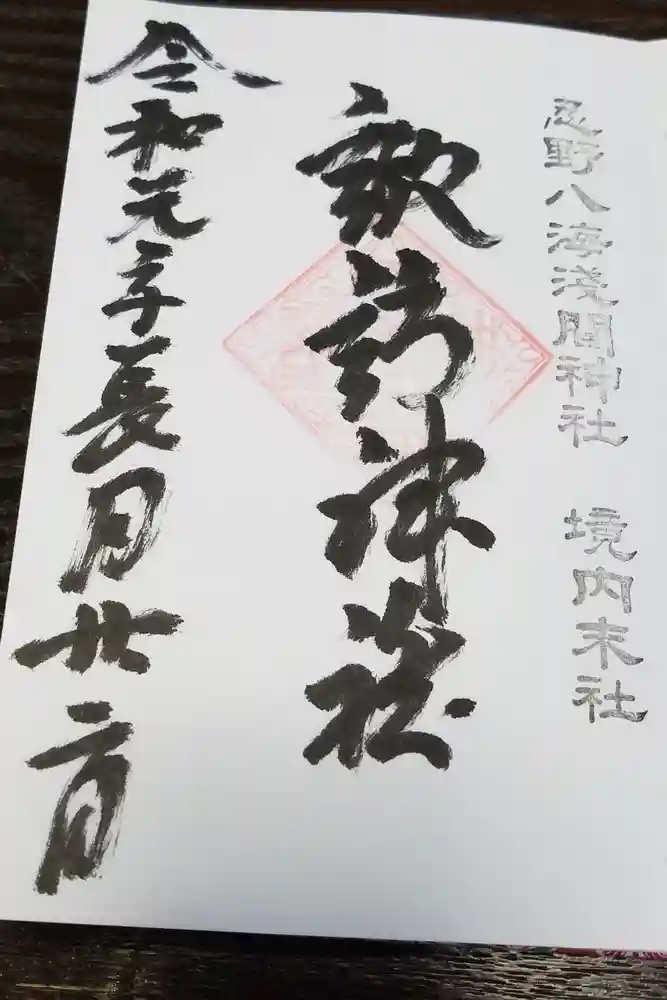 忍野八海淺間神社　境内末社
神
令和元年長月廿二日